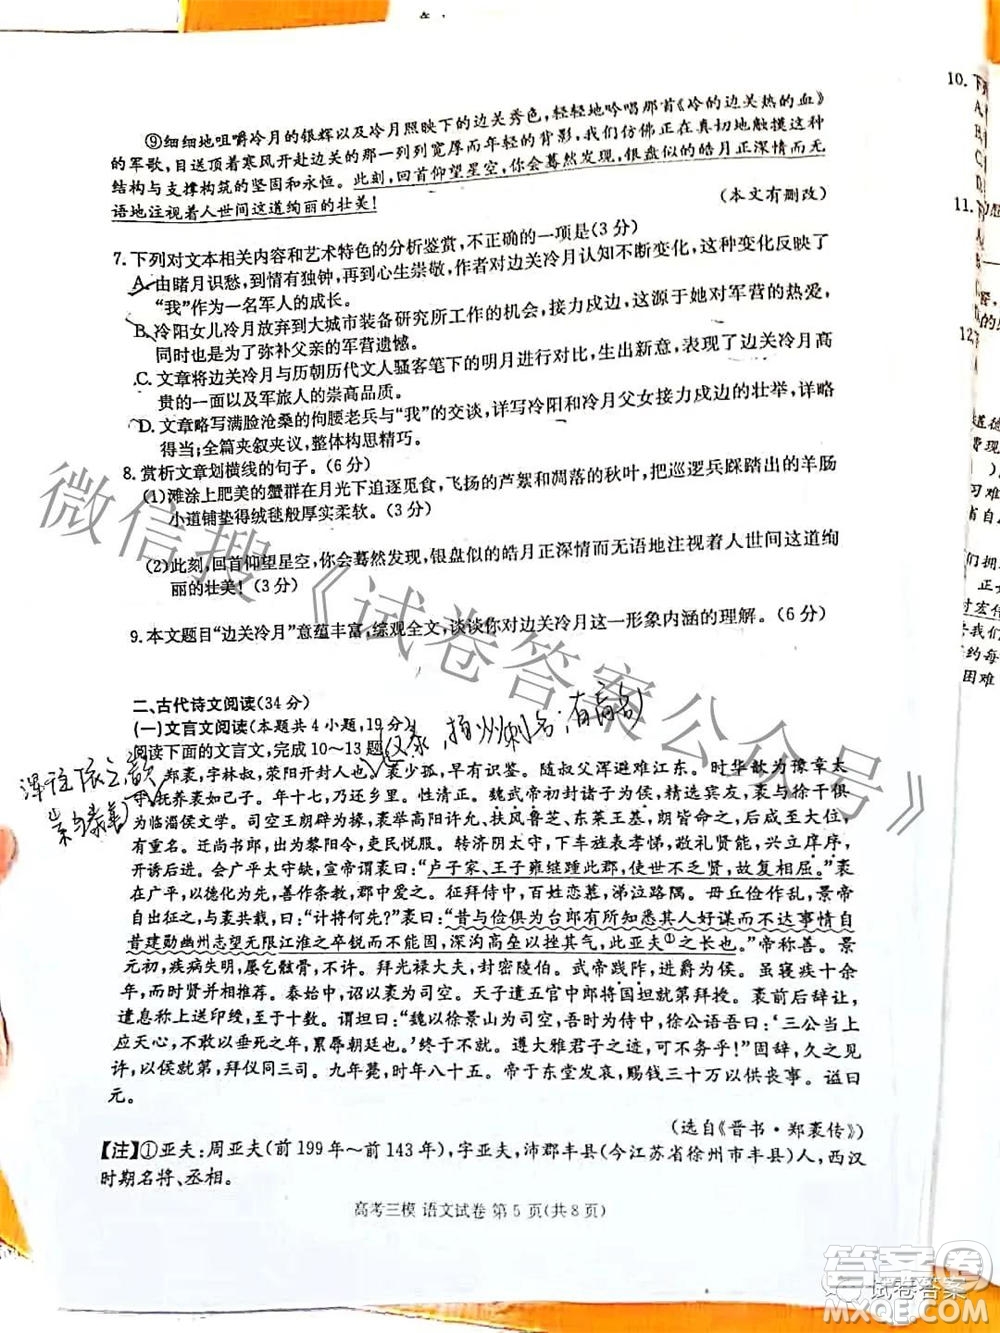 ⑨细细地咀嚼冷月的银辉以及冷月照映下的边关秀色,轻轻地吟唱那首《冷的边关热的血》
的军歌,目送顶着寒风开赴边关的那一列列宽厚而年轻的背影,我们仿佛正在真切地触摸这种
结构与支撑构筑的坚固和永恒。此刻,回首仰望星空,你会蓦然发现,银盘似的皓月正深情而无
语地注视着人世间这道绚丽的壮美!
(本文有删改)
7.下列对文本相关内容和艺术特色的分析鉴赏,不正确的一项是(3分)
A.由睹月识愁,到情有独钟,再到心生崇敬,作者对边关冷月认知不断变化,这种变化反映了
“我”作为一名军人的成长。
B.冷阳女儿冷月放弃到大城市装备研究所工作的机会,接力戍边,这源于她对军营的热爱,
同时也是为了弥补父亲的军营遗憾。
C.文章将边关冷月与历朝历代文人骚客笔下的明月进行对比,生出新意,表现了边关冷月高
贵的一面以及军旅人的崇高品质。
D.文章略写满脸沧桑的佝腰老兵与“我”的交谈,详写冷阳和冷月父女接力戍边的壮举,详略
得当;全篇夹叙夹议,整体构思精巧。
8.赏析文章划横线的句子。(6分)
(1)滩涂上肥美的蟹群在月光下追逐觅食,飞扬的芦絮和凋落的秋叶,把巡逻兵踩踏出的羊肠
小道铺垫得绒毯般厚实柔软。(3分)
(2)此刻,回首仰望星空,你会蓦然发现,银盘似的皓月正深情而无语地注视着人世间这道绚
丽的壮美!(3分)
9.本文题目“边关冷月”意蕴丰富,综观全文,谈谈你对边关冷月这一形象内涵的理解。(6分)
二、古代诗文阅读(34分)
(一)文言文阅读(本题共4小题,19分)
阅读下面的文言文,完成10~13题。
郑袤,字林叔,荥阳开封人也。袤少孤,早有识鉴。随叔父浑避难江东。时华歆为豫章太
守,抚养袤如己子。年十七,乃还乡里。性清正。魏武帝初封诸子为侯,精选宾友,袤与徐干俱
为临淄侯文学。司空王朗辟为掾,袤举高阳许允、扶风鲁芝、东莱王基,朗皆命之,后咸至大位,
有重名。迁尚书郎。出为黎阳令,吏民悦服。转济阴太守,下车旌表孝悌,敬礼贤能,兴立庠序,
开诱后进。会广平太守缺,宣帝谓袤曰:“卢子家、王子雍继踵此郡,使世不乏贤,故复相屈。”袤
在广平,以德化为先,善作条教,郡中爱之。征拜侍中,百姓恋慕,涕泣路隅。毋丘俭作乱,景帝
与袤共载,曰:“计将何先?”袤曰:“昔与俭俱为台郎有所知悉其人好谋而不达事情自
昔建勋幽州志望无限江淮之卒锐而不能固,深沟高垒以挫其气,此亚夫①之长也。”帝称善。景
元初,疾病失明,屡乞骸骨,不许。拜光禄大夫,封密陵伯。武帝践阼,进爵为侯。虽寝疾十余
年,而时贤并相推荐。泰始中,诏以袤为司空。天子遣五官中郎将国坦就第拜授。袤前后辞让,
遣息称上送印绶,至于十数。谓坦曰:“魏以徐景山为司空,吾时为侍中,徐公语吾曰:‘三公当上
应天心,不敢以垂死之年,累辱朝廷也。’终于不就。遵大雅君子之迹,可不务乎!”固辞,久之见
许,以侯就第,拜仪同三司。九年薨,时年八十五。帝于东堂发哀,赐钱三十万以供丧事。谥曰
元。
(选自《晋书·郑袤传》)
【注】①亚夫:周亚夫(前199年~前143年),字亚夫,沛郡丰县(今江苏省徐州市丰县)人,西汉
时期名将、丞相。
高考三模 语文试卷 第5页(共8页)
微信搜《试卷答案公众号》
10.下列
11.
12.
答案圈
试卷答案
MXQE.COM